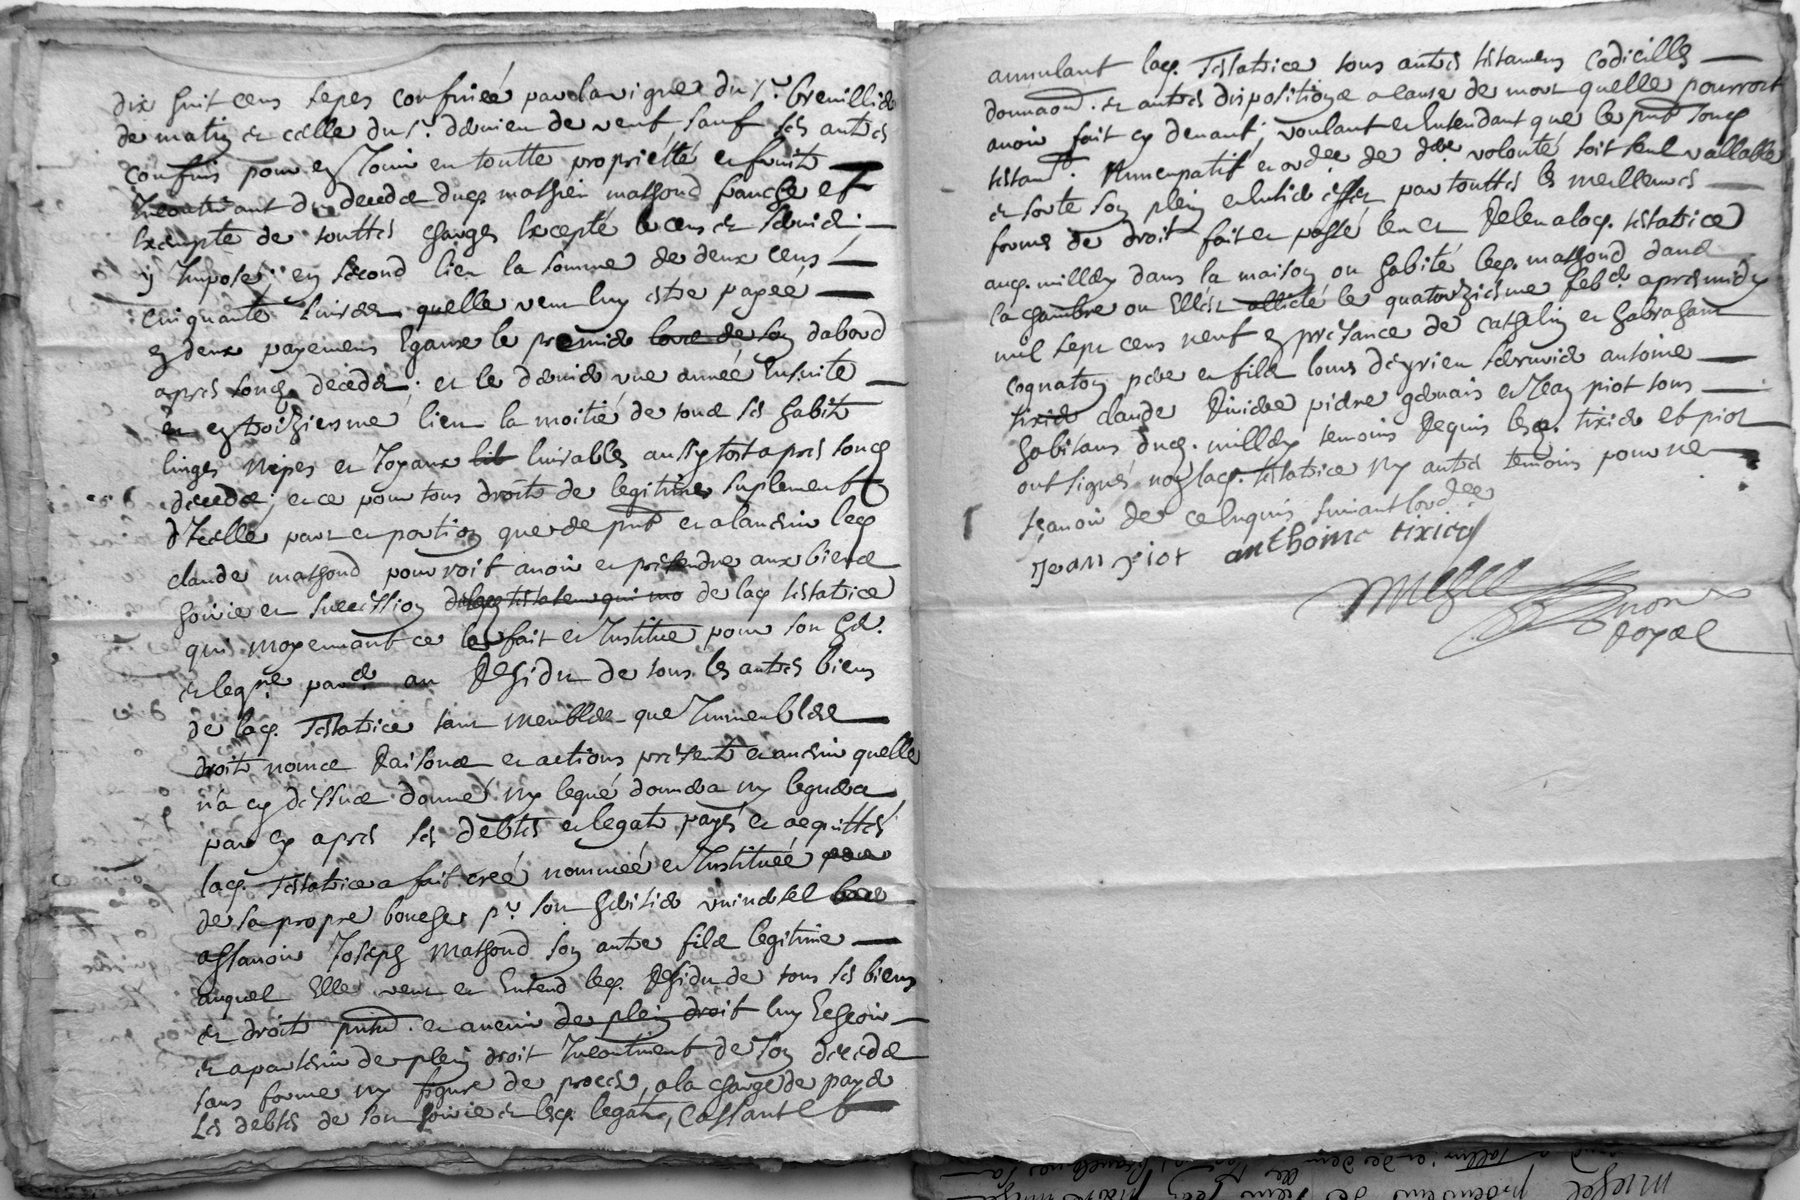 dix huit cens sepes confinée par la vigne du sr. breuillier
de matin et celle du sr. dernier de vent, sauf ses autres
confins pour en Jouir en toutte propriétté en fruits
Incontinant du decedz dud. mathieu mathond franche et
Exempte de touttes charges Excepté le cens et servis
y Imposé; en second lieu la somme de deux cens
cinquante livres quelle veut luy estre payée
en deux payemens Egaux le premier dabord
apres sond. deceds; et le dernier une année Ensuite
et en troiziesme lieu la moitié de tous ses habits
linges nipes et Joyaux livrables aussytost apres sond.
deceds; et ce pour tous droits de legitime suplement
d'Icelle part et portion que de pnt et a ladvenir led.
claude mathond pourroit avoir et pretendre aux biens
hoirie et succession de lad. testatrice
qui moyennant ce le fait et Institue pour son her.
et leg.re par.er Residu de tous les autres biens
de lad. Testatrice tant meubles que Immeubles
droits noms Raisons et actions presents et advenir quelle
n'a cy dessus donné ny legué donnera ny leguera
par cy apres ses debtes et legats payés et acquittés
lad. Testatrice a fait creé nommeé et Instituéé
de sa propre bouche pr. son heritier universel
assavoir Joseph Mathond son autre fils legitime
auquel Elle veut et Entend led. Residu de tous ses biens
et droits pnts. et avenir de plein droit luy Escheoir
et apartenir de plein droit Incontinent de son deceds
sans forme ny figure de proces, a la charge de payer
ses debtes de son hoirie et lesd. legats, Cassant et
annulant lad. Testatrice tous autres testamens codicilles
donnaon. et autres dispositions a cause de mort quelle pourroit
avoir fait cy devant; voulant et Entendant que le pnt sond.
testant. Nuncupatif et ordre de dre volonté soit seul vallable
et sorte son plein et Entier effet par touttes les meilleures
formes de droit fait et passé leu et Releu a lad. testatrice
aud. milléry dans la maison ou habite led. mathond dans
la chambre ou Elle est allitée le quatorziesme feb.er apres midy
mil sept cens neuf en presance de cathelin et habraham
cognaton pere et fils louis deyrieu serrurier antoine
tixier claude Riviere pierre gervais et Jean piot tous
habitans dud. milléry temoins Requis lesd. tixier et piot
ont signés non lad. testatrice ny autres temoins pour ne
scavoir de ce Enquis suivant lord.ce
Jean piot anthoine tixier
royal